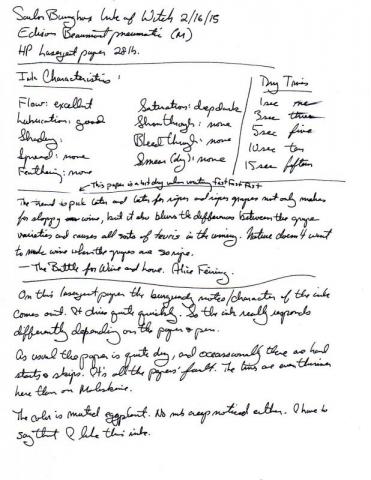 Ink of Witch 2/16/15
Edison Beaumont pneumatic (M)
HP Laserjet paper 28 lb.
Ink Characteristics:
Flow: excellent
Lubrication: good
Shading:
Spread: none
Feathering: none
Saturation: deep dark
Showthrough: none
Bleedthrough: none
Smear (dry): none
Dry Times
1 sec
3 sec three
5 sec five
10 sec ten
15 sec fifteen
This paper is a bit dry when writing fast fast fast
The trend to pick later and later for riper and riper grapes not only makes
for sloppy wine, but it also blurs the differences between the grape
varieties and causes all sorts of in the winery. Nature doesn't want
to make wine when the grapes are so ripe.
— The Battle for Wine and Love. Alice Feiring.
On this laserjet paper the burgundy notes/character of the ink
comes out. It dries quite quickly. So the ink really responds
differently depending on the paper & pen.
As usual the paper is quite dry, and occasionally there are hard
starts & skips. It's all the papers' fault. The lines are even thinner
here than on Moleskine.
The color is muted eggplant. No nib creep noticed either. I have to
say that I like this ink.